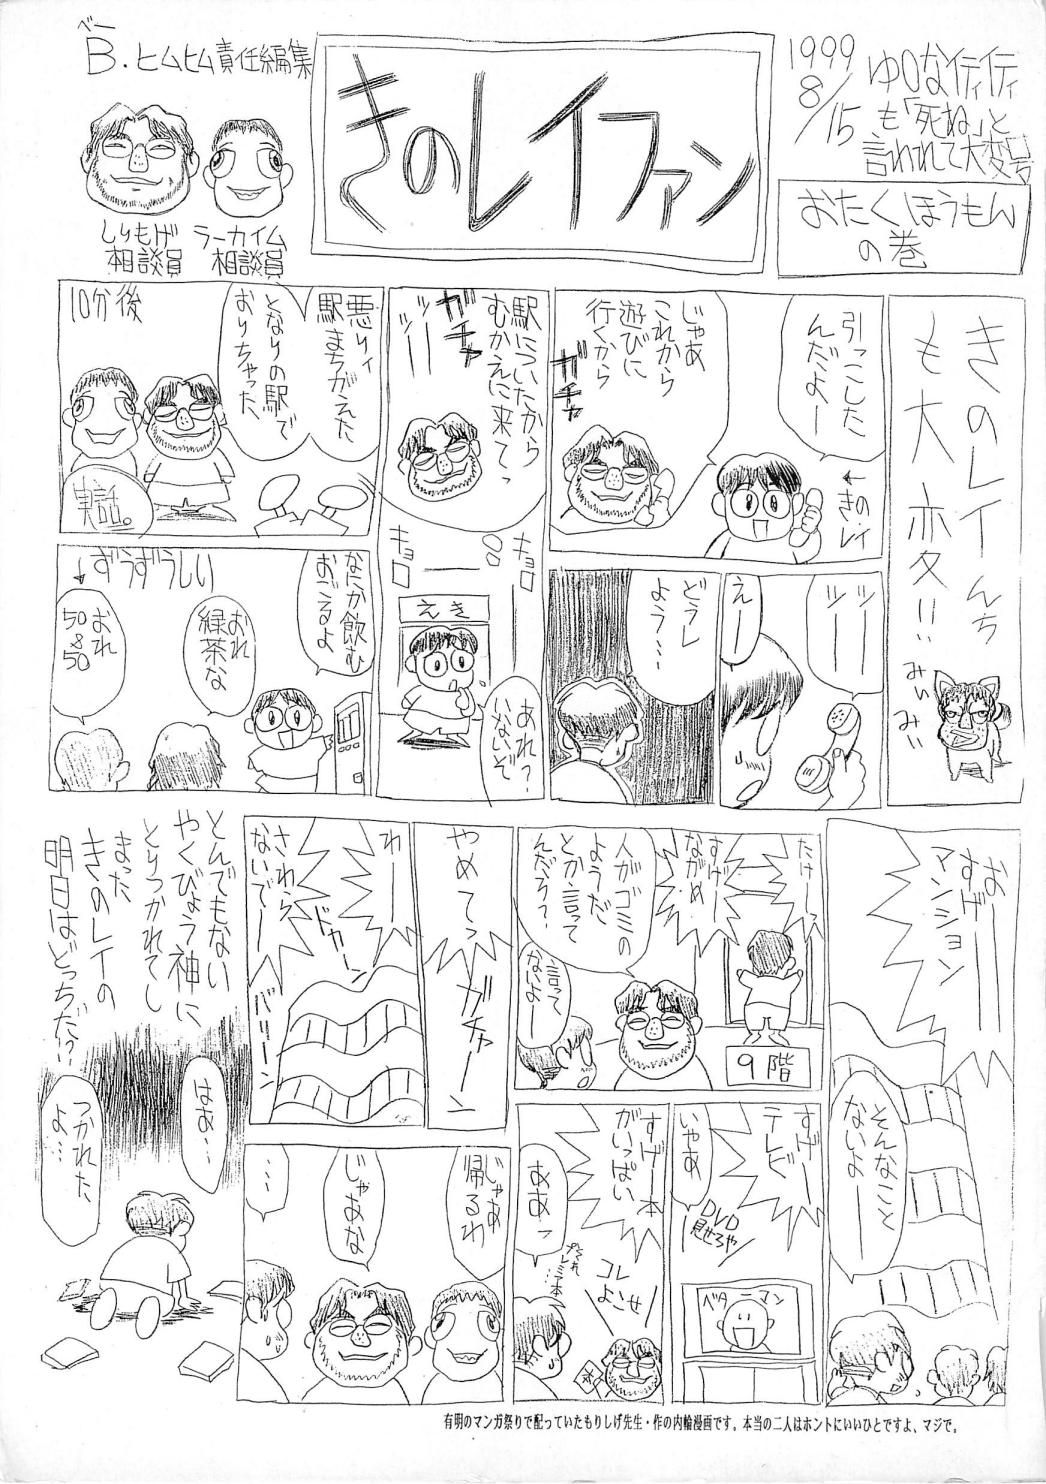 べー
B.ヒムヒム責任編集
しりもげ
相談員
ラーカイム
相談員
きのレイファン
1999
8/15
ゆりなイティイティ
も「死ね」と
言われて大変号
おたくほうもん
の巻
きのレイんち
も大変!!
みぃみぃ
引っこした
んだよー
←きのレイ
じゃあ
これから
遊びに
行くから
ガチャ
ツー
ツー
えー
どうし
よう…
駅についたから
むかえに来てっ
ガチャ
ツー
ツー
キョロ
キョロ
えき
あれ?
いないぞ
10分後
悪りィ
駅まちがえた
となりの駅で
おりちゃった
実話。
なにか飲む
おごるよ
おれ
緑茶な
おれ
50&50
↓ずうずうしい
おー
すげー
マンション
そんなこと
ないよー
たけーっ
すげー
ながめ
9階
人がゴミの
ようだ
とか言って
んだろ?
言って
ないよー
すげー
テレビ
いやあ
DVD
見せろや
ベターマン
すげー本
がいっぱい
ああっ
コレ
よこせ
それ
プレミア本…
本
やめてっ
ガチャーン
わー
ドカーン
さわら
ないでー
バリーン
じゃあ
帰るわ
じゃあな
…
とんでもない
やくびょう神に
とりつかれてし
まった
きのレイの
明日はどっちだ!?
はあ…
つかれた
よ…
有明のマンガ祭りで配っていたもりしげ先生・作の内輪漫画です。本当の二人はホントにいいひとですよ、マジで。